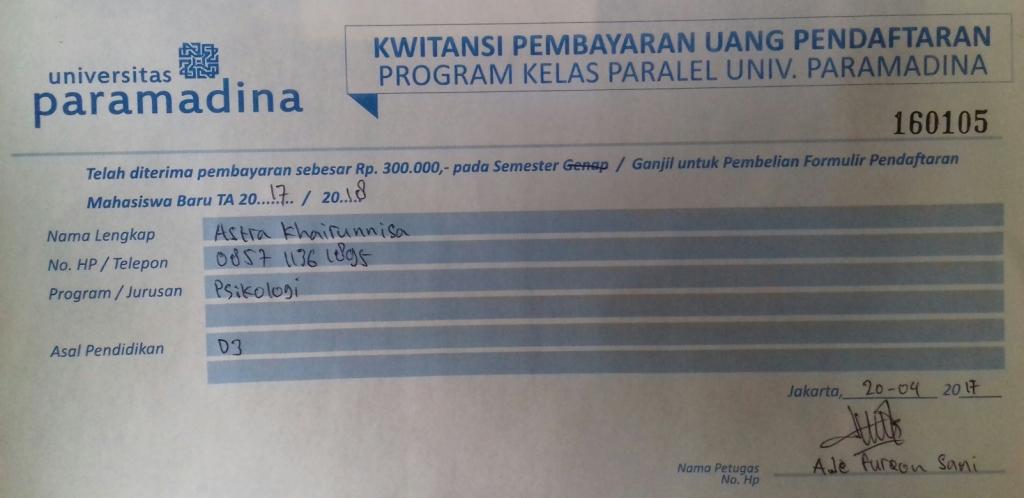 universitas
paramadina
KWITANSI PEMBAYARAN UANG PENDAFTARAN
PROGRAM KELAS PARALEL UNIV. PARAMADINA
160105
Telah diterima pembayaran sebesar Rp. 300.000,- pada Semester Genap / Ganjil untuk Pembelian Formulir Pendaftaran
Mahasiswa Baru TA 20..17.. / 20..18
Nama Lengkap Astra Khairunnisa
No. HP / Telepon 0857 1136 1895
Program / Jurusan Psikologi
Asal Pendidikan D3
Jakarta, 20-04 2017
Nama Petugas Ade Furqon Sani
No. Hp